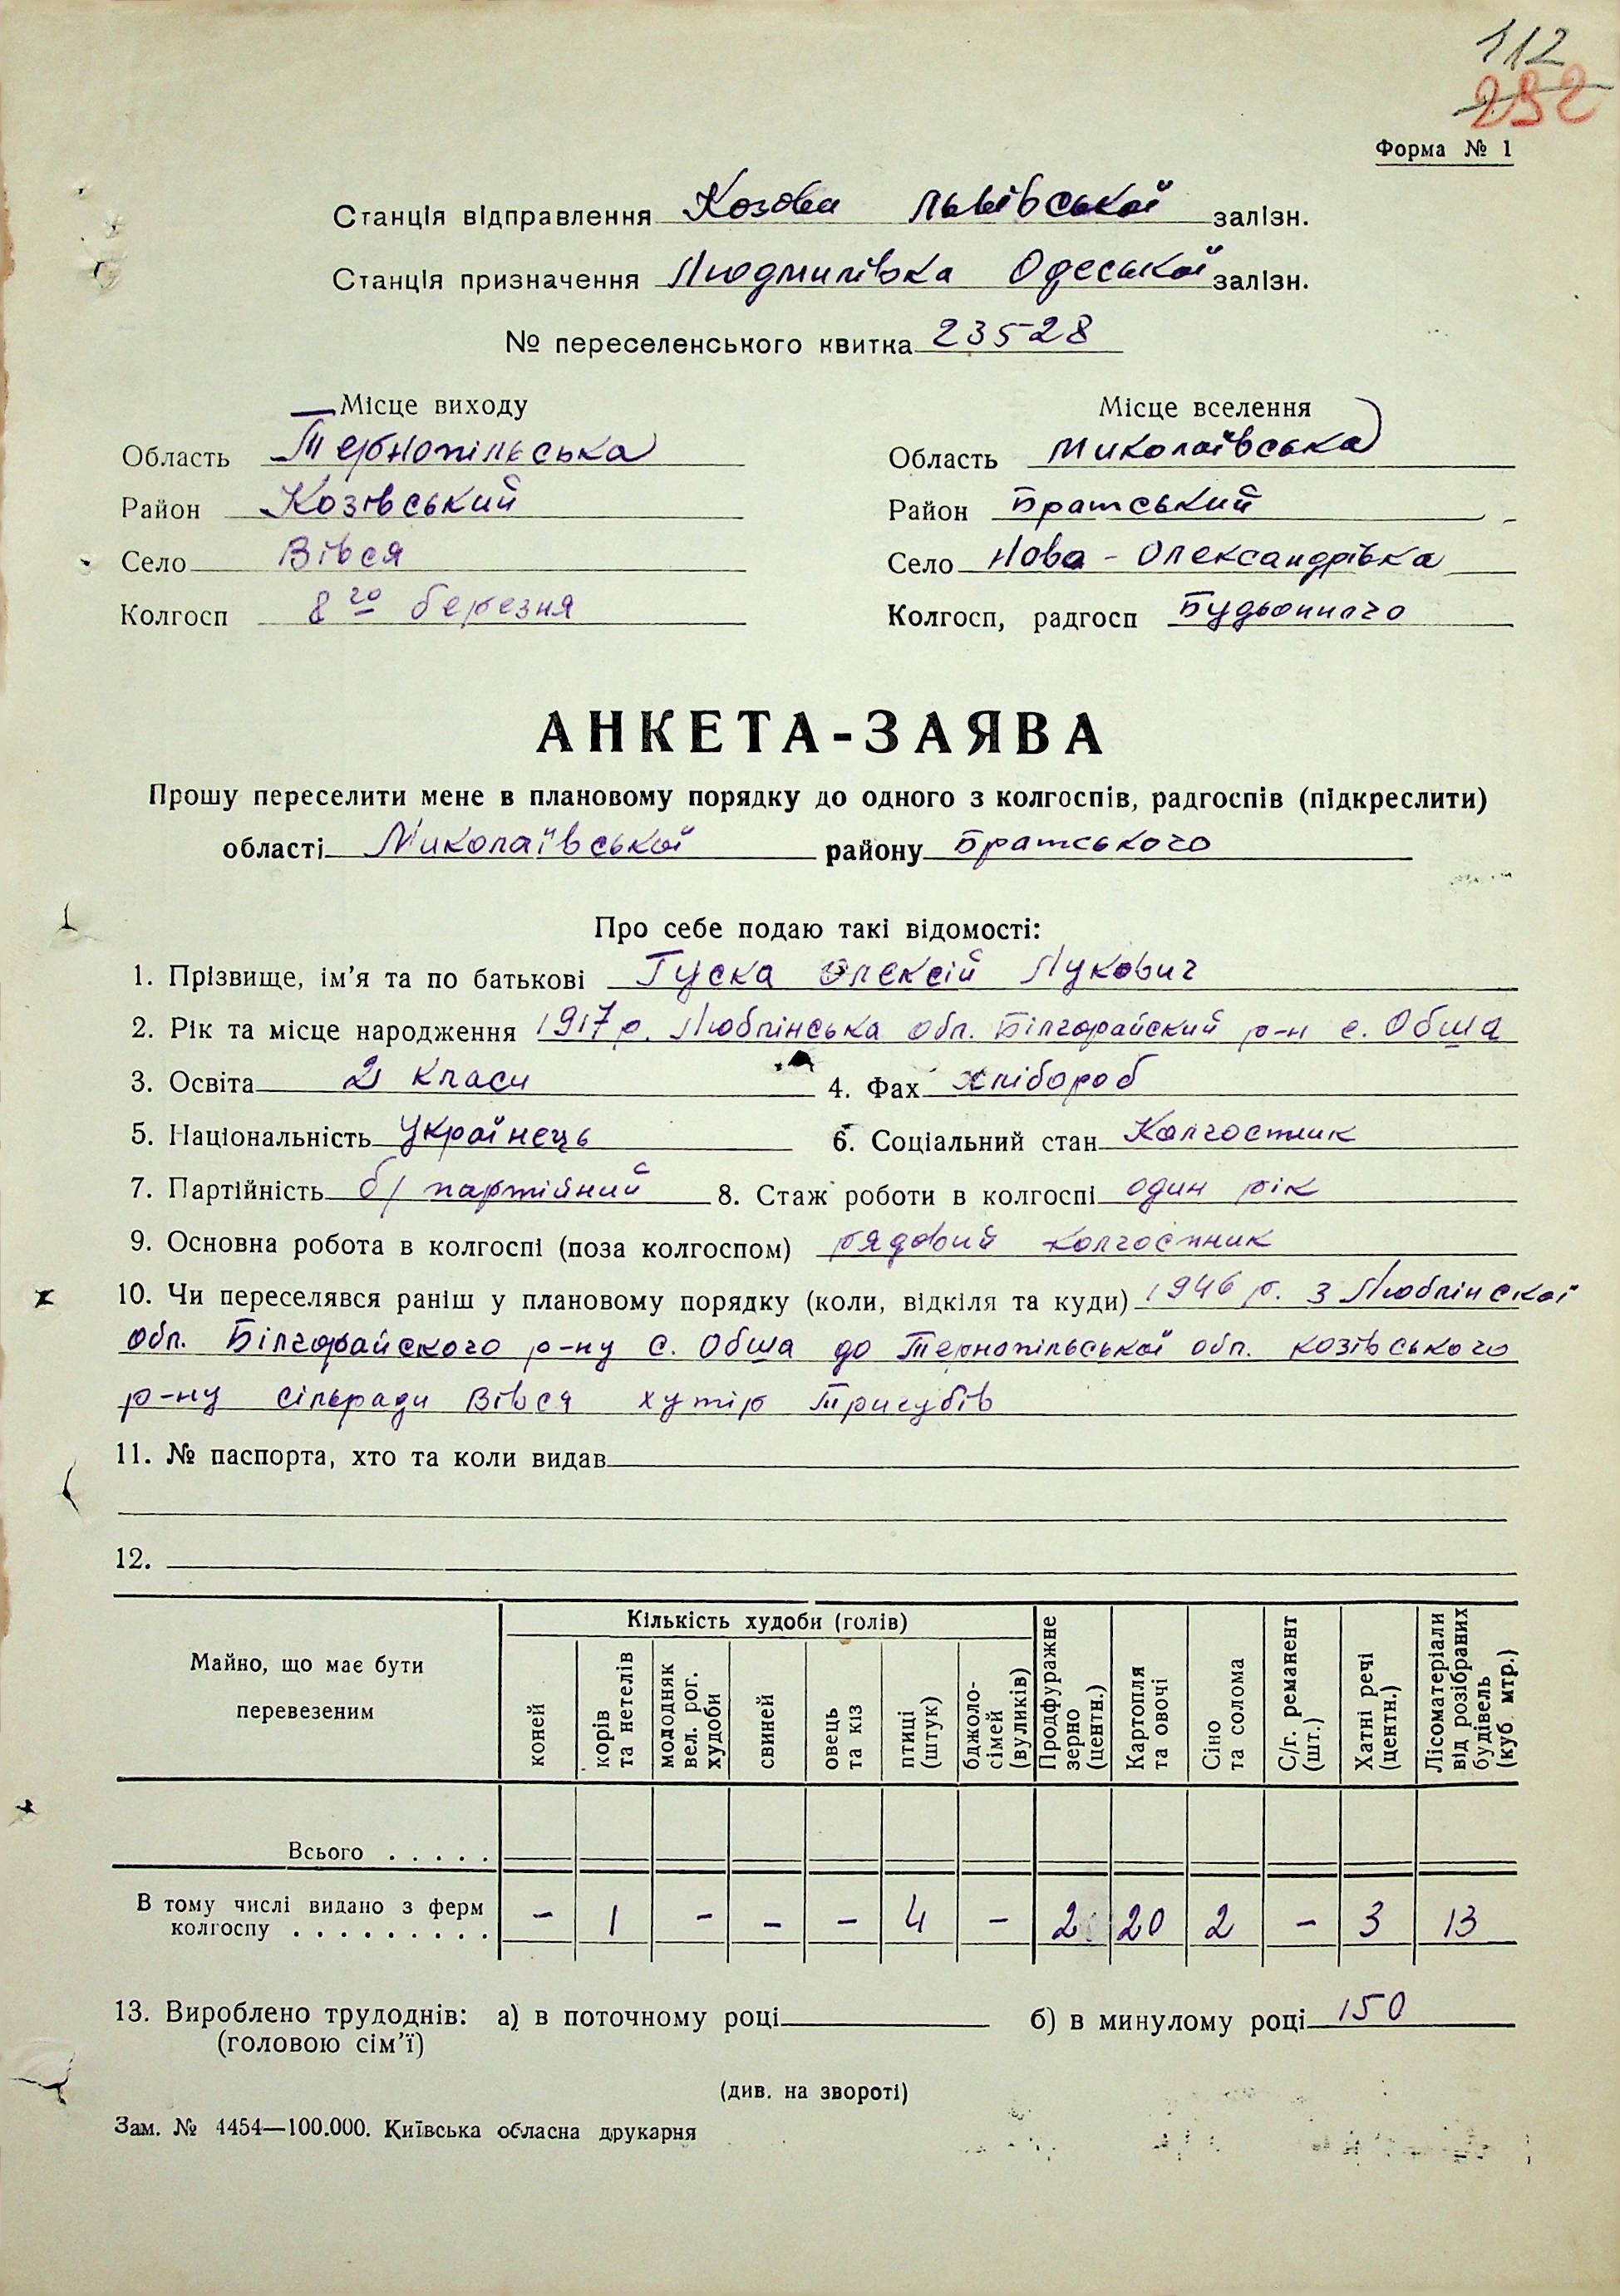 112
292
Форма № 1
Станція відправлення Козова Львівської залізн.
Станція призначення Людмилівка Одеської залізн.
№ переселенського квитка 23528
Місце виходу Місце вселення
Область Тернопільська Область Миколаївська
Район Козівський Район Братський
Село Вівся Село Нова - Олександрівка
Колгосп 8го березня Колгосп, радгосп Будьонного
АНКЕТА-ЗАЯВА
Прошу переселити мене в плановому порядку до одного з колгоспів, радгоспів (підкреслити)
області Миколаївської району Братського
Про себе подаю такі відомості:
1. Прізвище, ім'я та по батькові Гуска Олексій Лукович
2. Рік та місце народження 1917 р. Люблінська обл. Білгорайский р-н с. Обша
3. Освіта 2 класи 4. Фах хлібороб
5. Національність Українець 6. Соціальний стан Колгоспник
7. Партійність б/партійний 8. Стаж роботи в колгоспі один рік
9. Основна робота в колгоспі (поза колгоспом) рядовий колгоспник
10. Чи переселявся раніш у плановому порядку (коли, відкіля та куди) 1946 р. з Люблінскої
обл. Білгорайского р-ну с. Обша до Тернопільської обл. козівського
р-ну сільради Вівся хутір Тригубів
11. № паспорта, хто та коли видав
12.
Майно, що має бути перевезеним
Кількість худоби (голів)
коней
корів та нетелів
молодняк вел. рог. худоби
свиней
овець та кіз
птиці (штук)
бджоло-сімей (вуликів)
Продфуражне зерно (центн.)
Картопля та овочі
Сіно та солома
С/г. реманент (шт.)
Хатні речі (центн.)
Лісоматеріали від розібраних будівель (куб. мтр.)
Всього . . . . .
В тому числі видано з ферм
колгоспу . . . . . . . . . - 1 - - - 4 - 2 20 2 - 3 13
13. Вироблено трудоднів: а) в поточному році б) в минулому році 150
(головою сім'ї)
(див. на звороті)
Зам. № 4454—100.000. Київська обласна друкарня